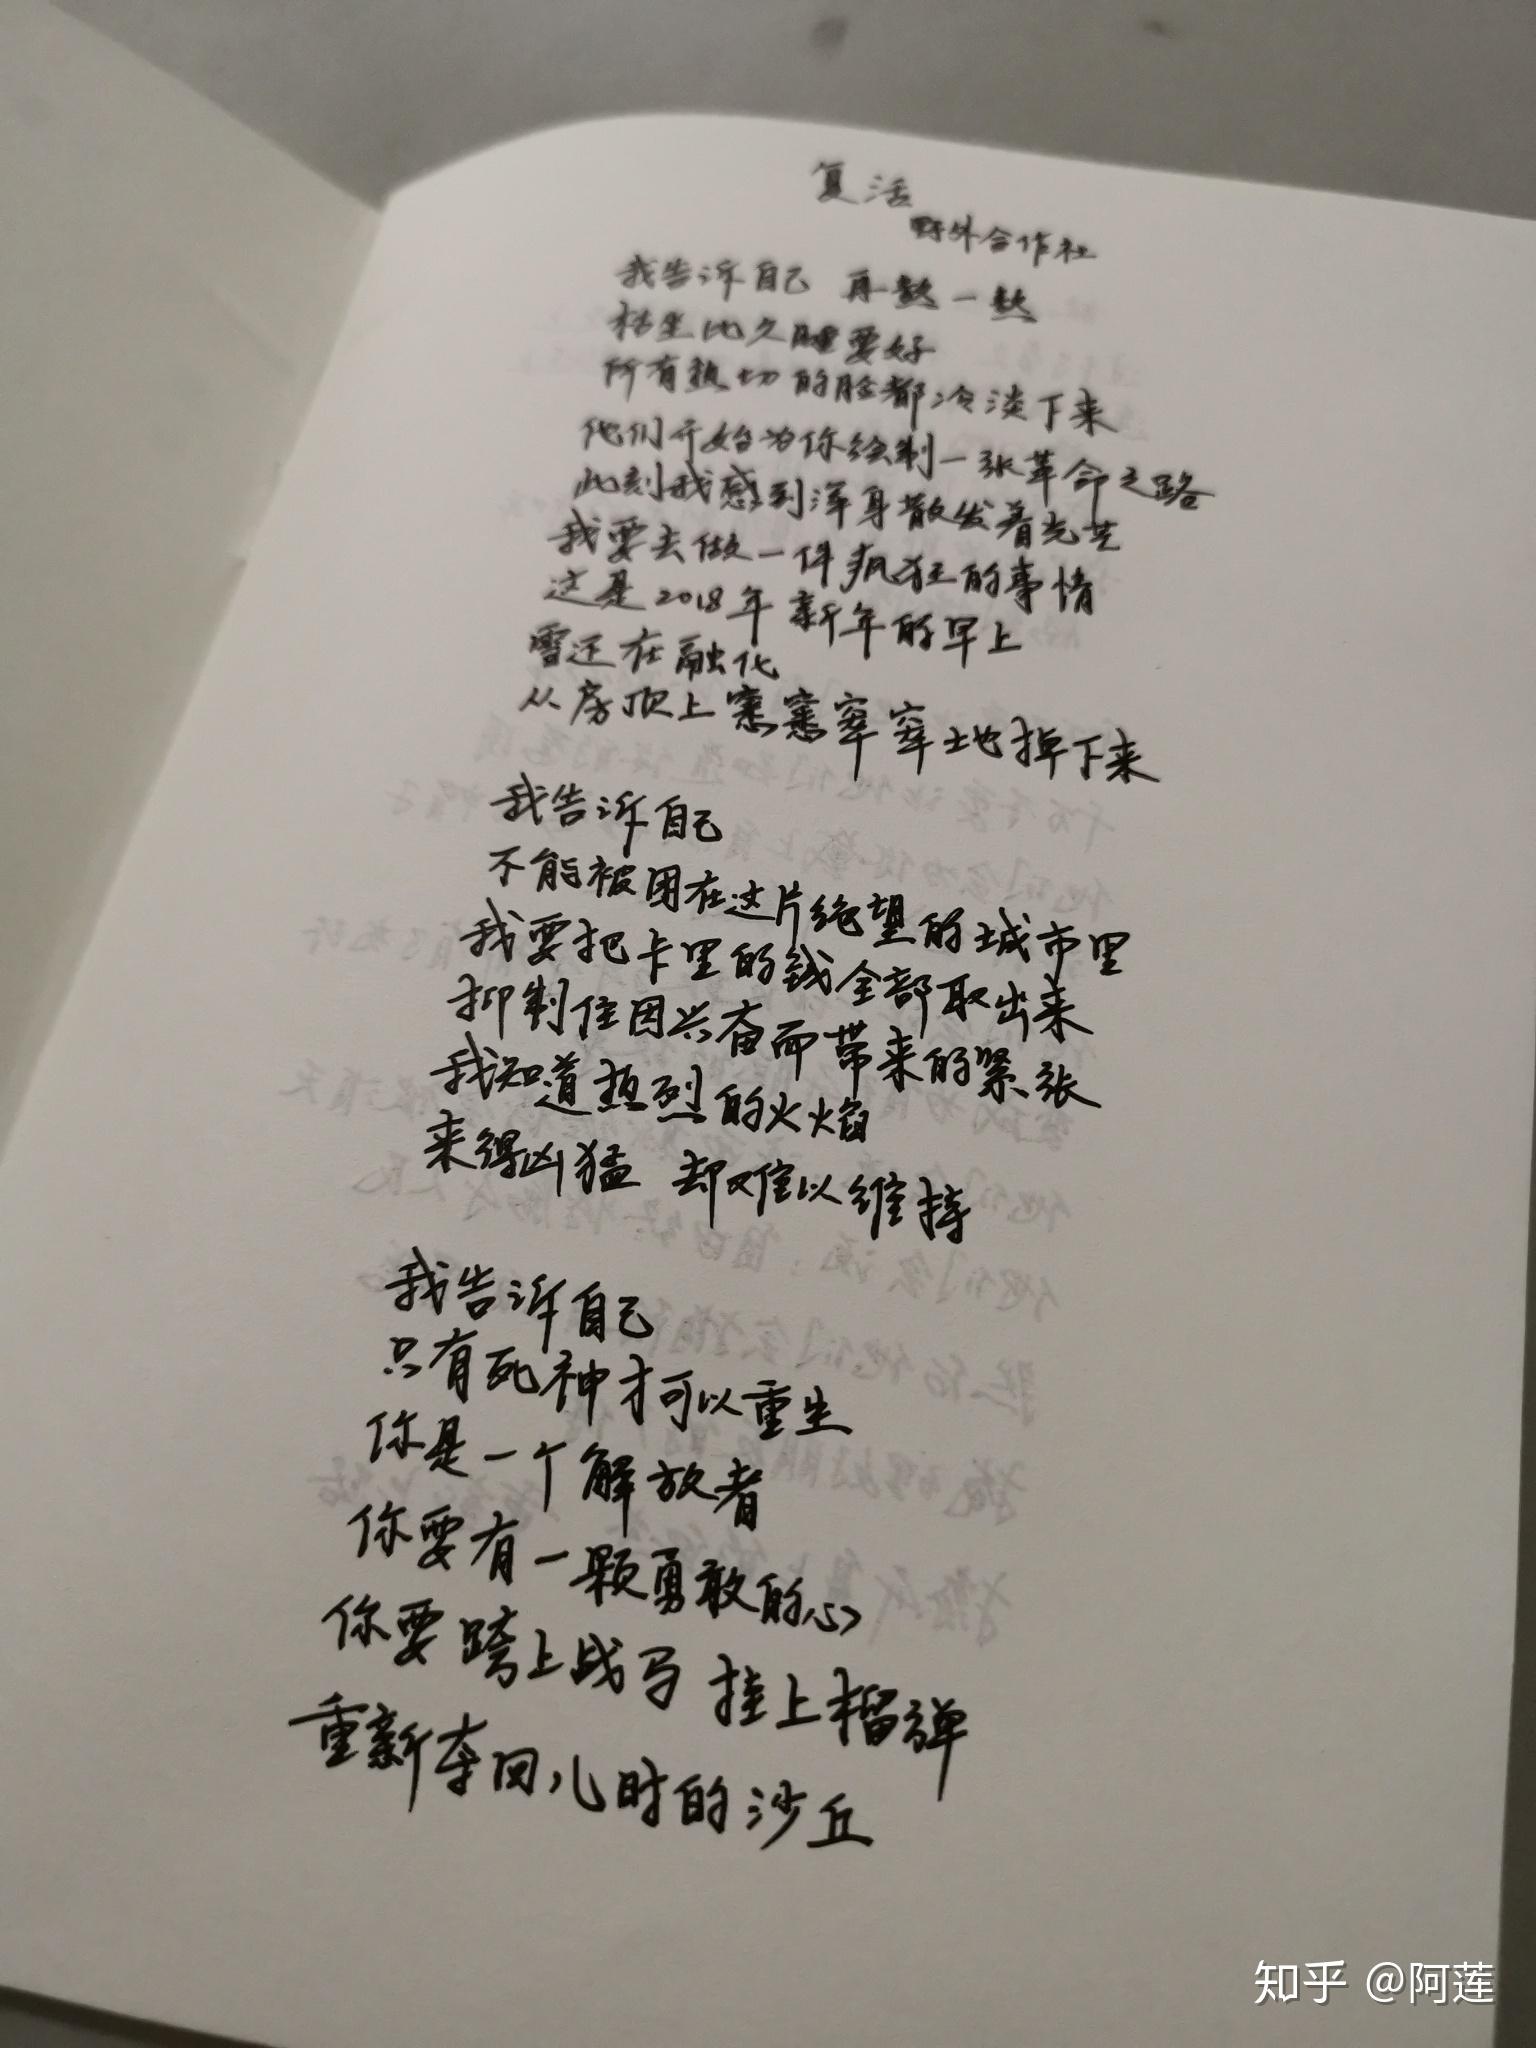 复活
野外合作社
我告诉自己 再熬一熬
枯坐比久睡要好
所有热切的脸都冷淡下来
他们开始为你绘制一张革命之路
此刻我感到浑身散发着光芒
我要去做一件疯狂的事情
这是2018年新年的早上
雪还在融化
从房顶上窸窸窣窣地掉下来
我告诉自己
不能被困在这片绝望的城市里
我要把卡里的钱全部取出来
抑制住因兴奋而带来的紧张
我知道热烈的火焰
来得凶猛 却难以维持
我告诉自己
只有死神才可以重生
你是一个解放者
你要有一颗勇敢的心
你要跨上战马 挂上榴弹
重新夺回儿时的沙丘
知乎 @阿莲